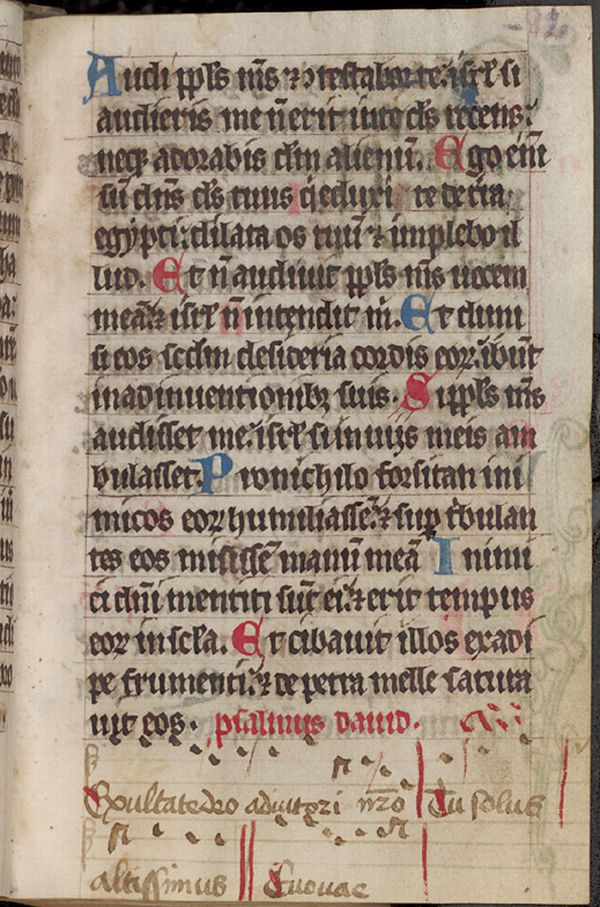 Audi ppl̄s me͞us ⁊ ↄtestabor te: isrl̄ si
audieris me n̄ erit in te ds̄ recens:
neqꝫ adorabis dm̄ alienū. Ego em̄
sū dn̄s ds̄ tuus q̇ eduxi te de t̄ra
egypti: dilata os tuū ⁊ implebo il
lud. Et n̄ audiuit ppl̄s ms̄ uocem
meā: ⁊ isrl̄ n̄ intendit m̄. Et dimi
si eos scdm desideria cordis eoꝝ: ibūt
in adinuentionibꝫ suis. Si ppl̄s ms̄
audisset me: isrl̄ si in uijs meis am
bulasset. Pro nichilo forsitan ini
micos eoꝝ humiliassē: ⁊ sup t̄bulan
tes eos misissē manū meā Inimi
ci dn̄i mentiti sūt ei: ⁊ erit tempus
eoꝝ in scl̄a. Et cibauit illos ex adi
pe frumenti: ⁊ de petra melle satura
uit eos. psalmus dauid.
Exultate deo adiutori nr̄o Tu solus
altissimus Euouae